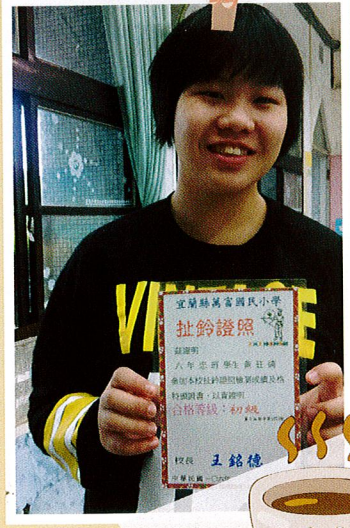 VINTAGE
宜蘭縣萬富國民小學
扯鈴證照
茲證明
六年忠班學生黃
參加本校扯鈴證照檢定成績及格
特頒證書，以資證明
合格等級：初級
校長 王銘德
中華民國一〇六年